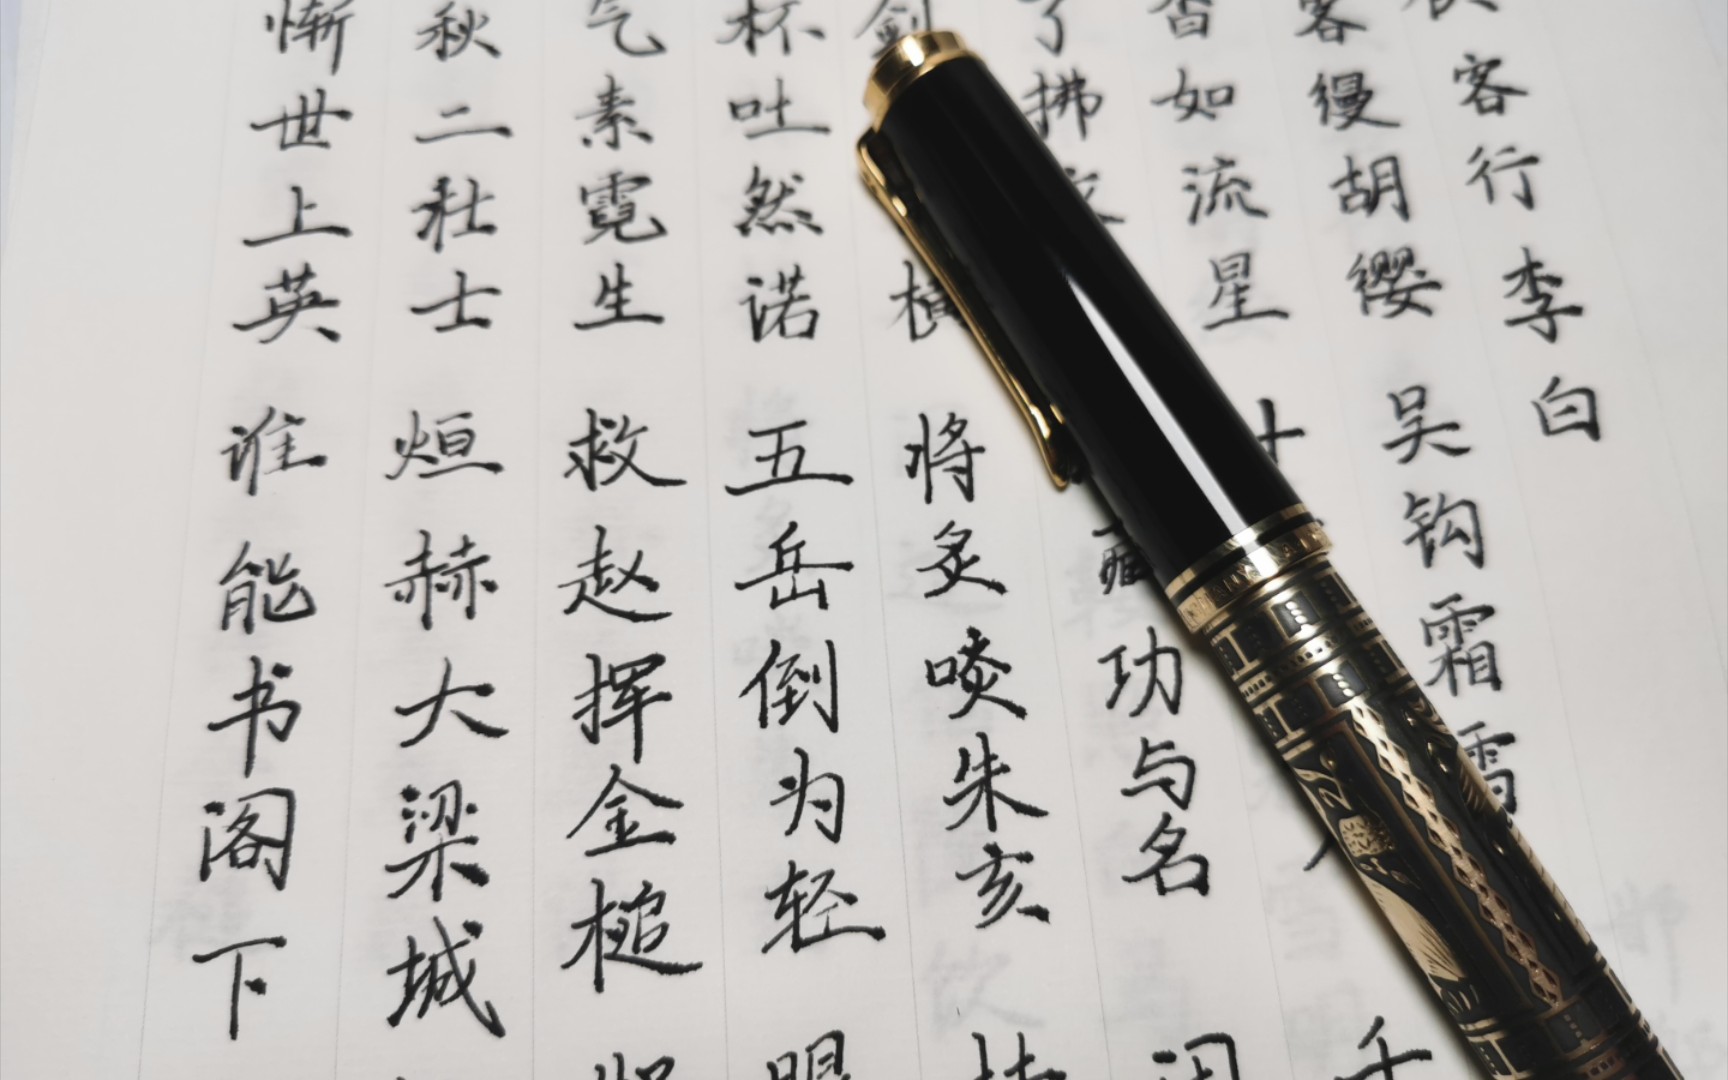 客行李白
客缦胡缨 吴钩霜雪
沓如流星 十 千
了拂衣 藏功与名
剑横 将炙啖朱亥
杯吐然诺 五岳倒为轻 眼
气素霓生 救赵挥金槌
秋二壮士 烜赫大梁城
惭世上英 谁能书阁下